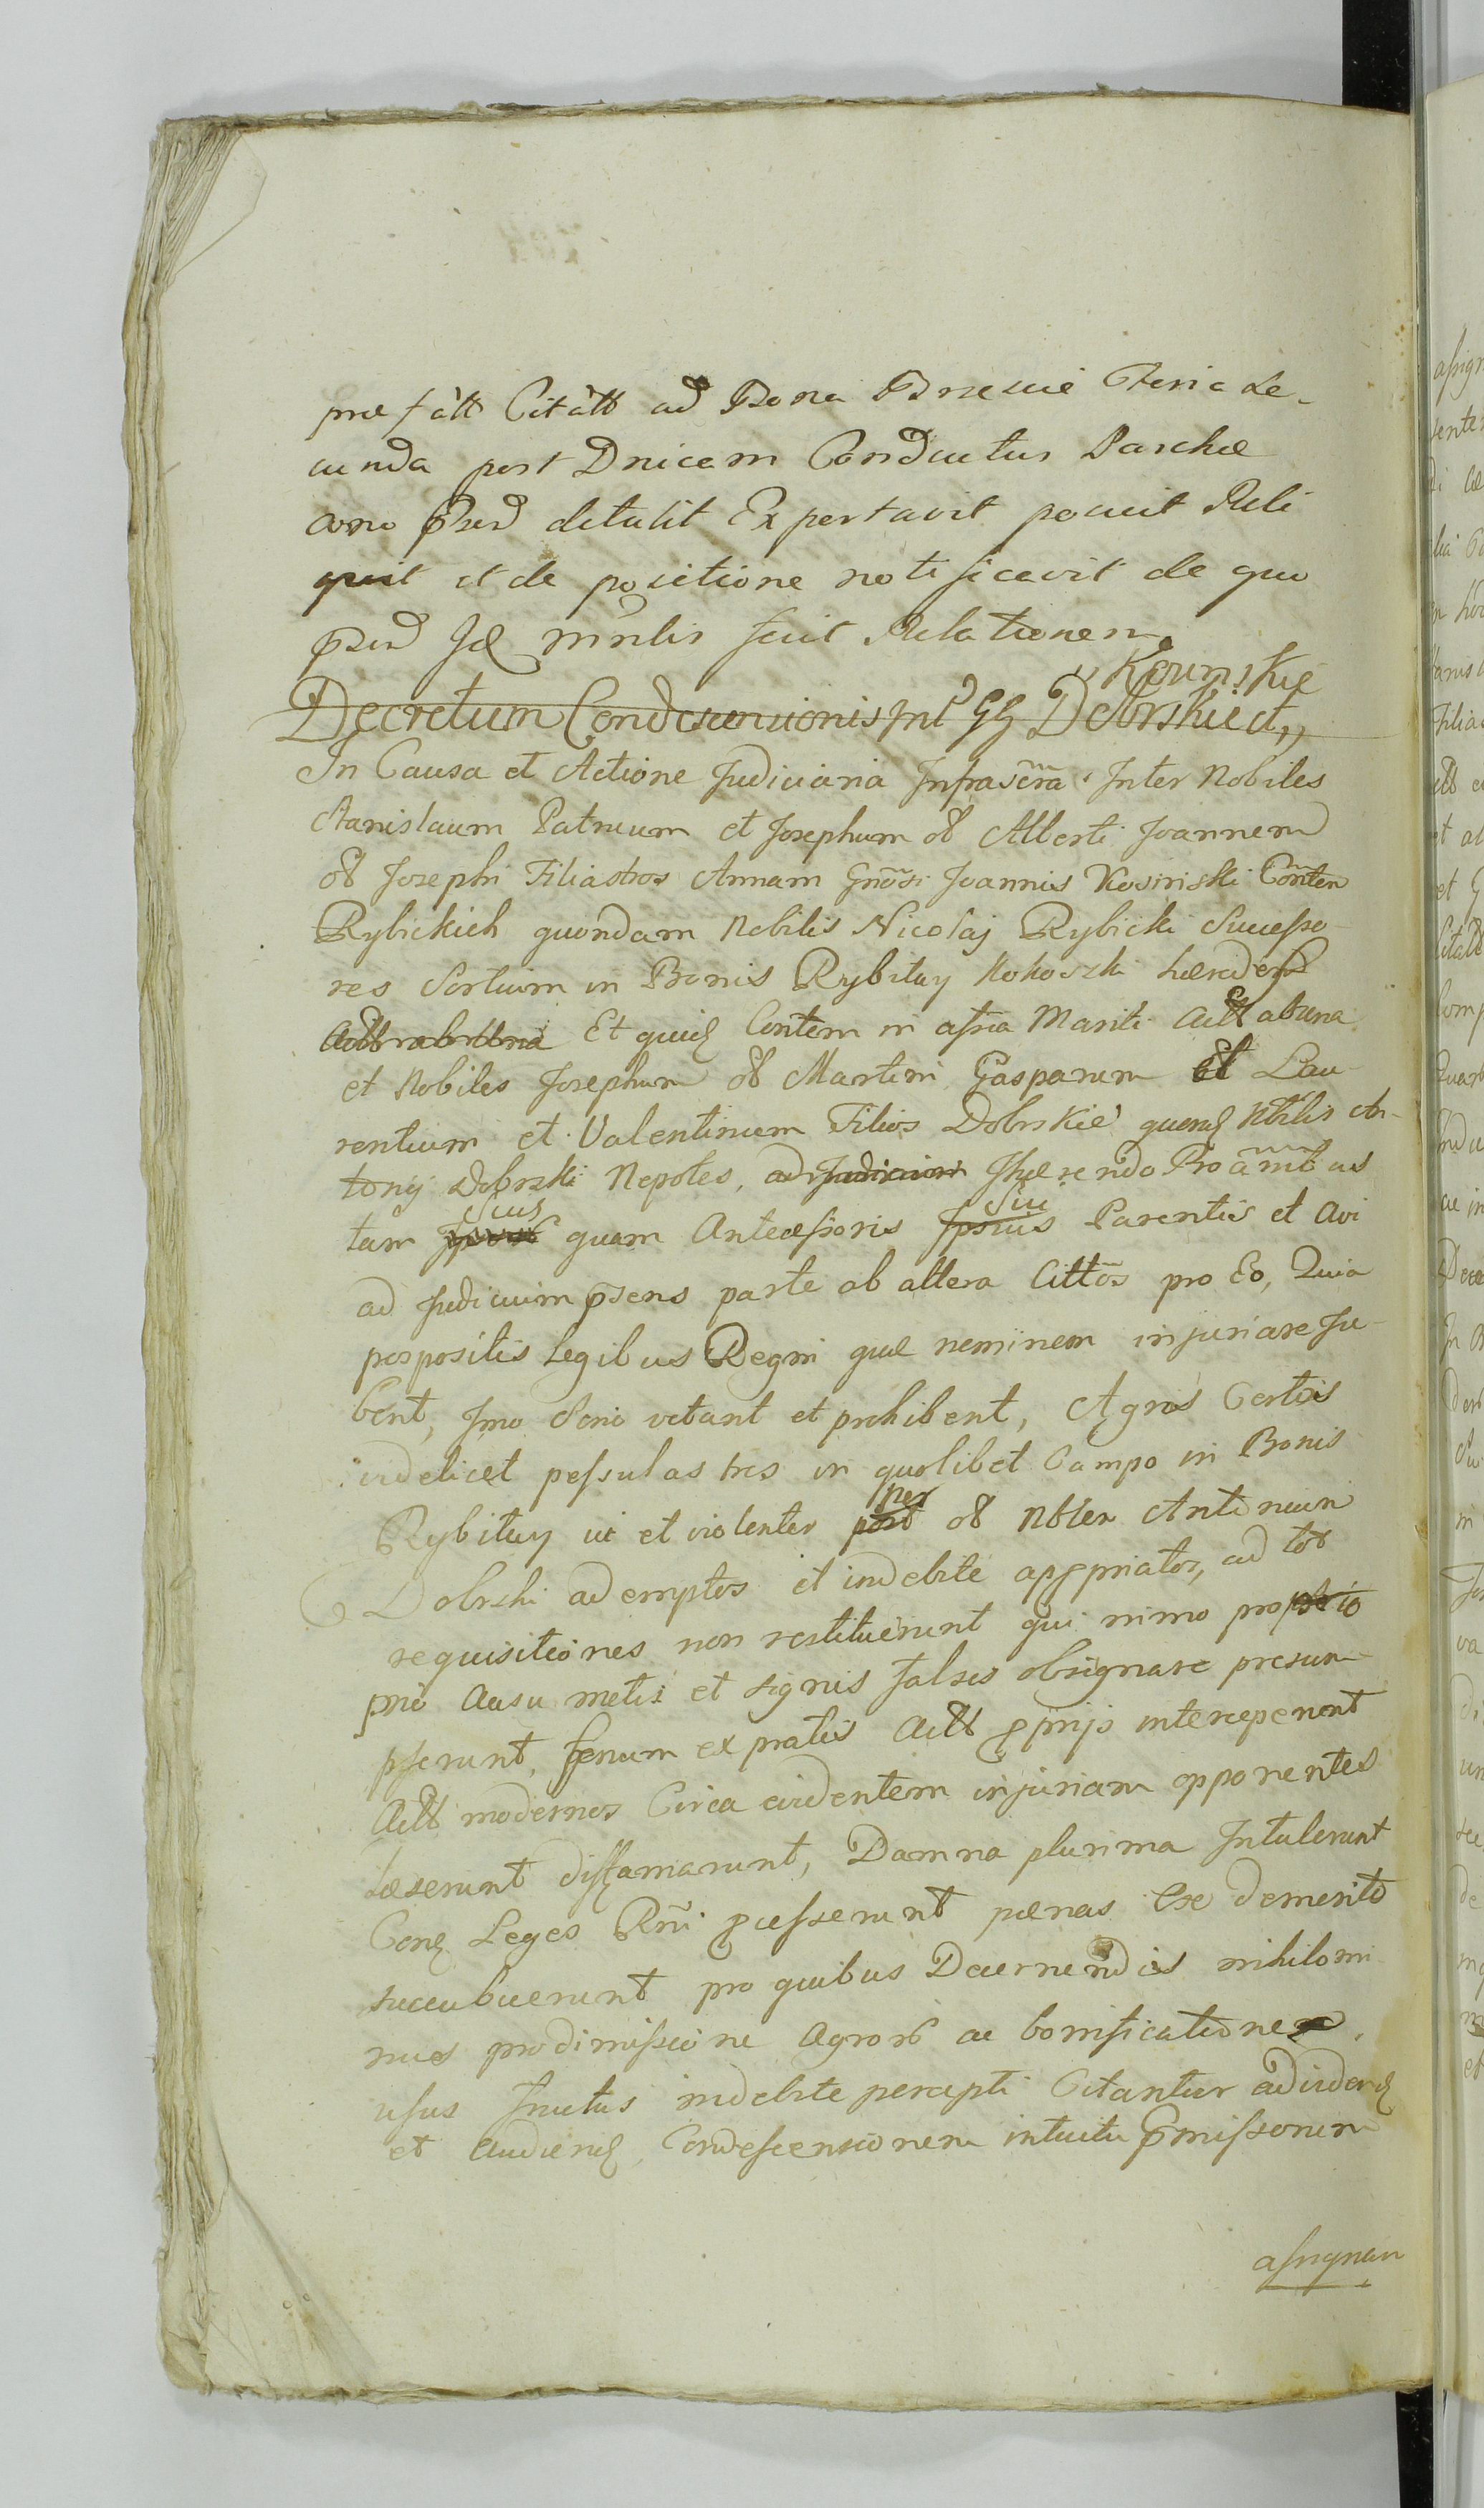 præfatt Citatt ad Bona Brzescie Feria Se-
cunda post Dnicam Conductus Paschæ
anno psnd detulit Exportavit posuit Reli
quit et de positione notificavit de quo
psnd Jd mnlis fecit Relationem
„Kosinskie
Decretum Condescensionis int GG Dobrskie et„
In Causa et Actione Judiciaria Infrascra Inter Nobiles
Stanislaum Patruum et Josephum ol Alberti Joannem
ol Josephi Filiastros Annam Gnosi Joannis Kosinski Conten
Rybickich quondam Nobilis Nicolaj Rybicki Successo-
res Sortium in Bonis Rybitwy Kokoszki hæredes
Et quid Contem in assia Mariti Actt ab una
et Nobiles Josephum ol Martini Gasparum Et Lau-
rentium et Valentinum Filios Dobrskie quond Nbilis An-
tonij Dobrski Nepotes, ad Judicium Jhærendo Proambus
Suis Sui
tam quam Antecessoris Ipsius Parentis et Avi
ad Judicium psens parte ab altera Cittos pro Eo, Quia
pospositis Legibus Regni quæ neminem injuriare Ju-
bent, Jmo Serio vetant et prohibent, Agros Certos
videlicet pessulas tres in quolibet Campo in Bonis
per
Rybitwy vi et violenter post ol Nblem Antonium
Dobrski ademptos et indebite appriatos, ad tot
requisitiones non restituerunt qui nimo proprio
prio Ausu metis et signis falsis obsignare presum-
pserunt, fenum ex pratis Actt pprijs interceperunt
Actt modernos Circa evidentem injuriam opponentes
Læserunt diffamarunt, Damna plurima Intulerunt
Cong Leges Rni pcesserunt pænas Ex demerito
succubuerunt pro quibus Decernendis nihilomi
nus pro dimissione Agror ac bonificatione
usus fructus indebite percepti Citantur ad vidend
et Audiend Condescensionem intuitu Pmissorum
assignan